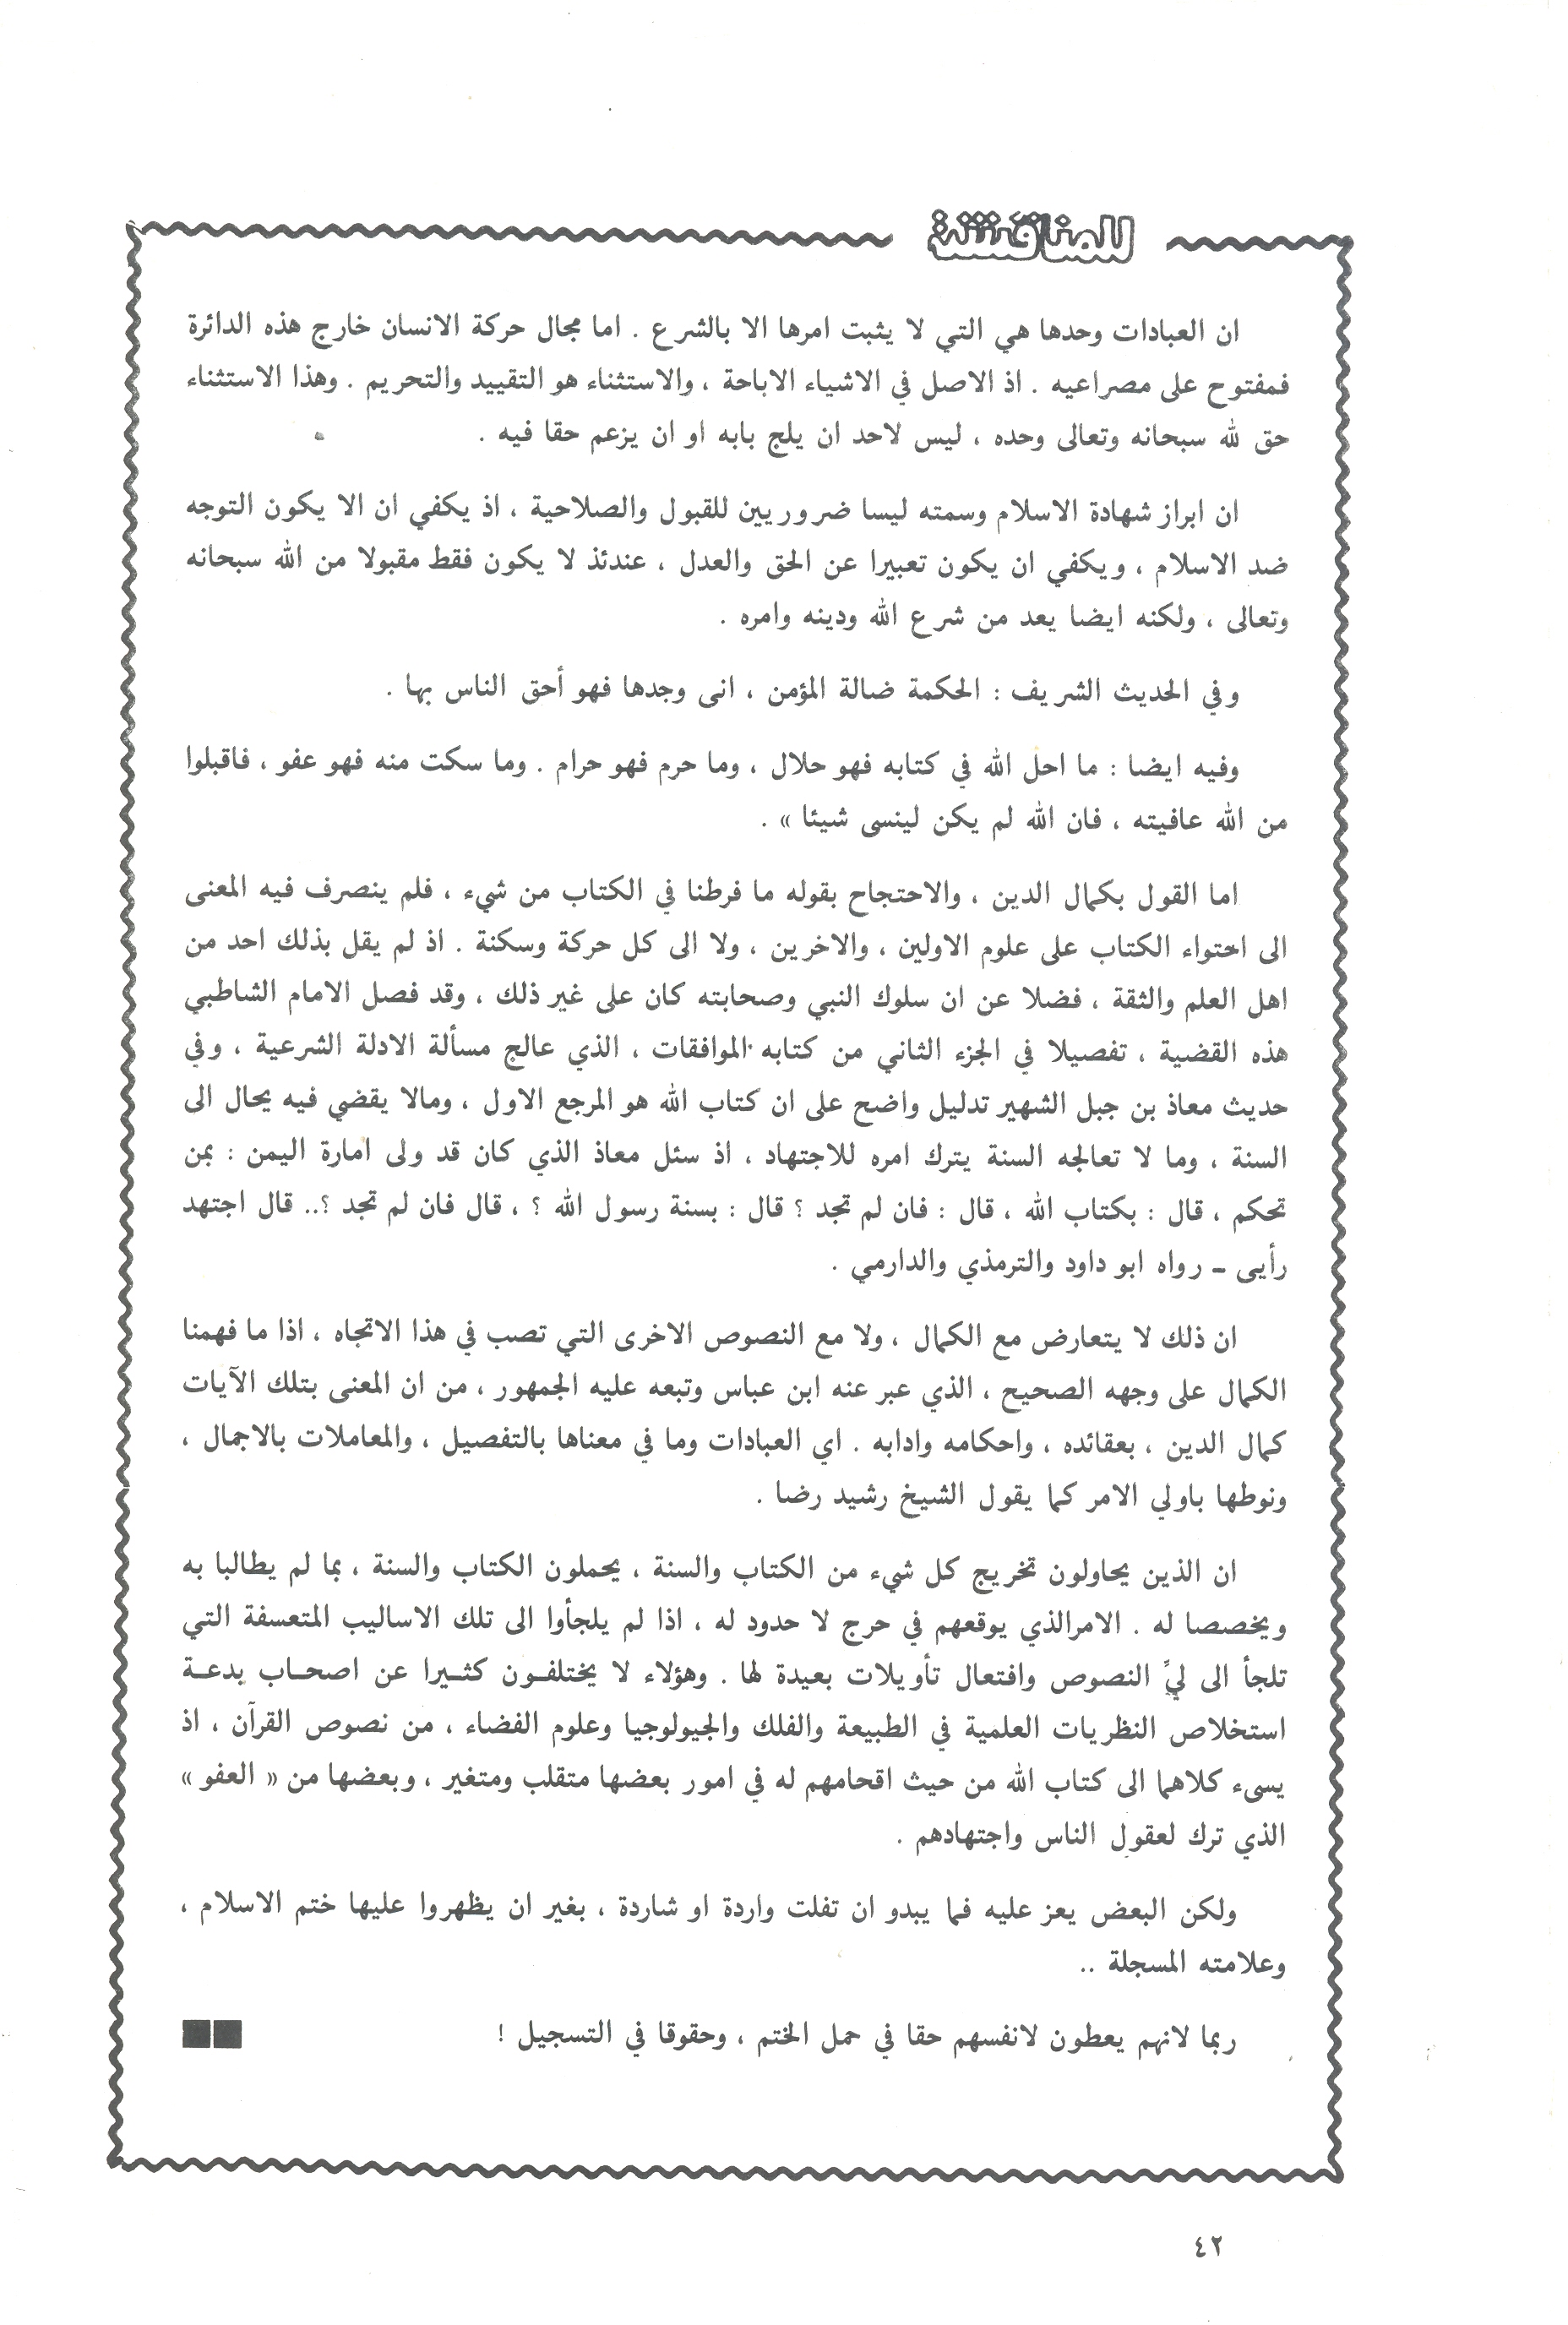 للمناقشة
ان العبادات وحدها هي التي لا يثبت امرها الا بالشرع . اما مجال حركة الانسان خارج هذه الدائرة
فمفتوح على مصراعيه . اذ الاصل في الاشياء الاباحة ، والاستثناء هو التقييد والتحريم . وهذا الاستثناء
حق لله سبحانه وتعالى وحده ، ليس لاحد ان يلج بابه او ان يزعم حقا فيه .
ان ابراز شهادة الاسلام وسمته ليسا ضروريين للقبول والصلاحية ، اذ يكفي ان الا يكون التوجه
ضد الاسلام ، ويكفي ان يكون تعبيرا عن الحق والعدل ، عندئذ لا يكون فقط مقبولا من الله سبحانه
وتعالى ، ولكنه ايضا يعد من شرع الله ودينه وامره .
وفي الحديث الشريف : الحكمة ضالة المؤمن ، انى وجدها فهو أحق الناس بها .
وفيه ايضا : ما احل الله في كتابه فهو حلال ، وما حرم فهو حرام . وما سكت منه فهو عفو ، فاقبلوا
من الله عافيته ، فان الله لم يكن لينسى شيئا » .
اما القول بكمال الدين ، والاحتجاج بقوله ما فرطنا في الكتاب من شيء ، فلم ينصرف فيه المعنى
الى احتواء الكتاب على علوم الاولين ، والاخرين ، ولا الى كل حركة وسكنة . اذ لم يقل بذلك احد من
اهل العلم والثقة ، فضلا عن ان سلوك النبي وصحابته كان على غير ذلك ، وقد فصل الامام الشاطبي
هذه القضية ، تفصيلا في الجزء الثاني من كتابه الموافقات ، الذي عالج مسألة الادلة الشرعية ، وفي
حديث معاذ بن جبل الشهير تدليل واضح على ان كتاب الله هو المرجع الاول ، ومالا يقضي فيه يحال الى
السنة ، وما لا تعالجه السنة يترك امره للاجتهاد ، اذ سئل معاذ الذي كان قد ولى امارة اليمن : بمن
تحكم ، قال : بكتاب الله ، قال : فان لم تجد ؟ قال : بسنة رسول الله ؟ ، قال فان لم تجد ؟.. قال اجتهد
رأيى ـ رواه ابو داود والترمذي والدارمي .
ان ذلك لا يتعارض مع الكمال ، ولا مع النصوص الاخرى التي تصب في هذا الاتجاه ، اذا ما فهمنا
الكمال على وجهه الصحيح ، الذي عبر عنه ابن عباس وتبعه عليه الجمهور ، من ان المعنى بتلك الآيات
كمال الدين ، بعقائده ، واحكامه وادابه . اي العبادات وما في معناها بالتفصيل ، والمعاملات بالاجمال ،
ونوطها باولي الامر كما يقول الشيخ رشيد رضا .
ان الذين يحاولون تخريج كل شيء من الكتاب والسنة ، يحملون الكتاب والسنة ، بما لم يطالبا به
ويخصصا له . الامرالذي يوقعهم في حرج لا حدود له ، اذا لم يلجأوا الى تلك الاساليب المتعسفة التي
تلجأ الى ليِّ النصوص وافتعال تأويلات بعيدة لها . وهؤلاء لا يختلفـون كثـيرا عن اصحـاب بدعـة
استخلاص النظريات العلمية في الطبيعة والفلك والجيولوجيا وعلوم الفضاء ، من نصوص القرآن ، اذ
يسىء كلاهما الى كتاب الله من حيث اقحامهم له في امور بعضها متقلب ومتغير ، وبعضها من « العفو »
الذي ترك لعقول الناس واجتهادهم .
ولكن البعض يعز عليه فما يبدو ان تفلت واردة او شاردة ، بغير ان يظهروا عليها ختم الاسلام ،
وعلامته المسجلة ..
ربما لانهم يعطون لانفسهم حقا في حمل الختم ، وحقوقا في التسجيل !
٤٢